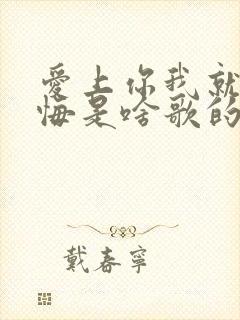 爱上你我就
悔是啥歌的
戴春宁